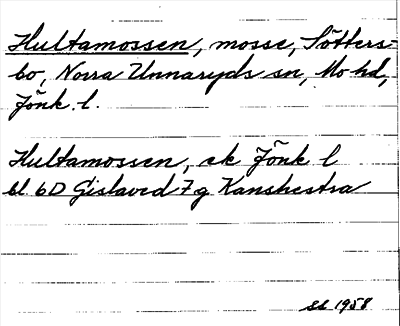 Hultamossen, mosse, Sötters-
bo, Norra Unnaryds sn, Mo hd,
Jönk. l.
Hultamossen, ek Jönk l
bl 6D Gislaved 7g Kanshestra
SL 1958